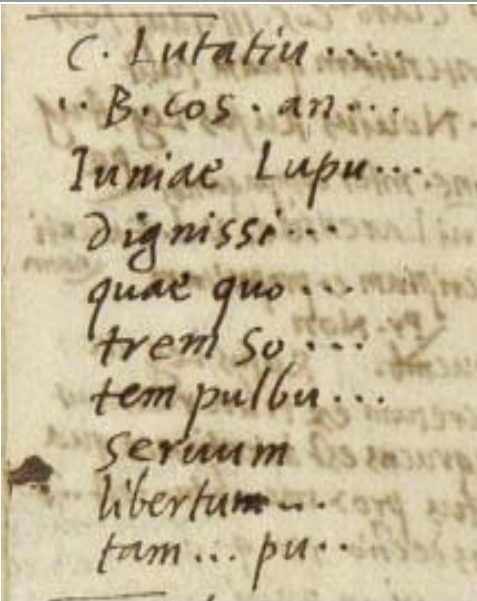 C. Lutatiu....
.. B. cos. an...
Iuniae Lupu...
dignissi...
quae quo...
trem so...
tem pulbu...
seruum
libertum...
tam... pu..